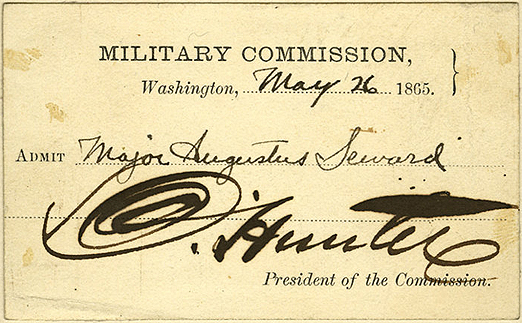 MILITARY COMMISSION,
Washington, May 26 1865.
ADMIT Major Augustus Seward
D. Hunter
President of the Commission.